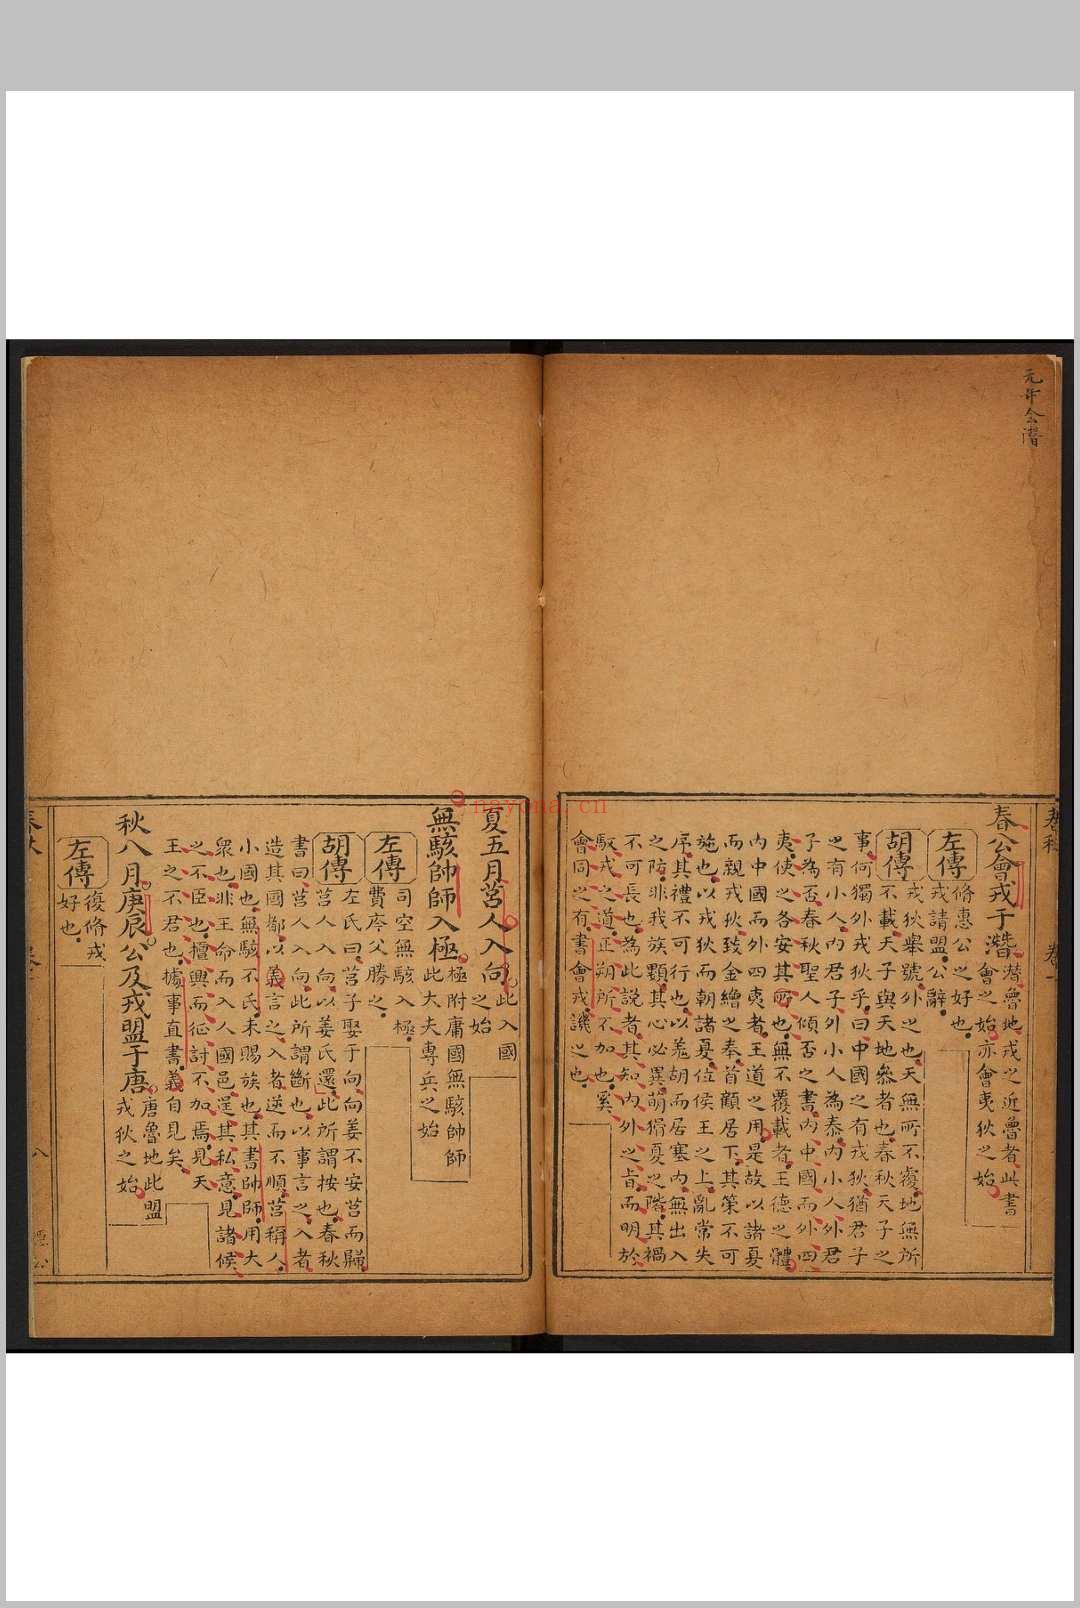 元年會潛
春公會戎于潛
潛魯地戎之近魯者此書
會之始亦會夷狄之始
左傳
脩惠公之好也
戎請盟公辭
胡傳
戎狄舉號外之也天無所不覆地無所
不載天子與天地參者也春秋天子之
事何獨外戎狄乎曰中國之有戎狄猶君子
之有小人內君子外小人為泰內小人外君
子為否春秋聖人傾否之書內中國而外四
夷使之各安其所也無不覆載者王德之體
內中國而外四夷者王道之用是故以諸夏
而親戎狄致金繒之奉首顧居下其策不可
施也以戎狄而朝諸夏位侯王之上亂常失
序其禮不可行也以羗胡而居塞內無出入
之防非我族類其心必異萌猾夏之階其禍
不可長也為此說者其知內外之旨而明於
馭戎之道正朔所不加也奚
會同之有書會戎譏之也
夏五月莒人入向
此入國
之始
無駭帥師入極
極附庸國無駭帥師
此大夫專兵之始
左傳
司空無駭入極
費庈父勝之
胡傳
左氏曰莒子娶于向向姜不安莒而歸
莒人入向以姜氏還此所謂按也春秋
書曰莒人入向此所謂斷也以事言之入者
造其國都以義言之入者逆而不順莒稱人
小國也無駭不氏未賜族也其書帥師用大
眾也非王命而入人國邑逞其私意見諸侯
之不臣也擅興而征討不加焉見天
王之不君也據事直書義自見矣
秋八月庚辰公及戎盟于唐
唐魯地此盟
戎狄之始
左傳
復脩戎
好也
春秋
八
隱公
nayona.cn